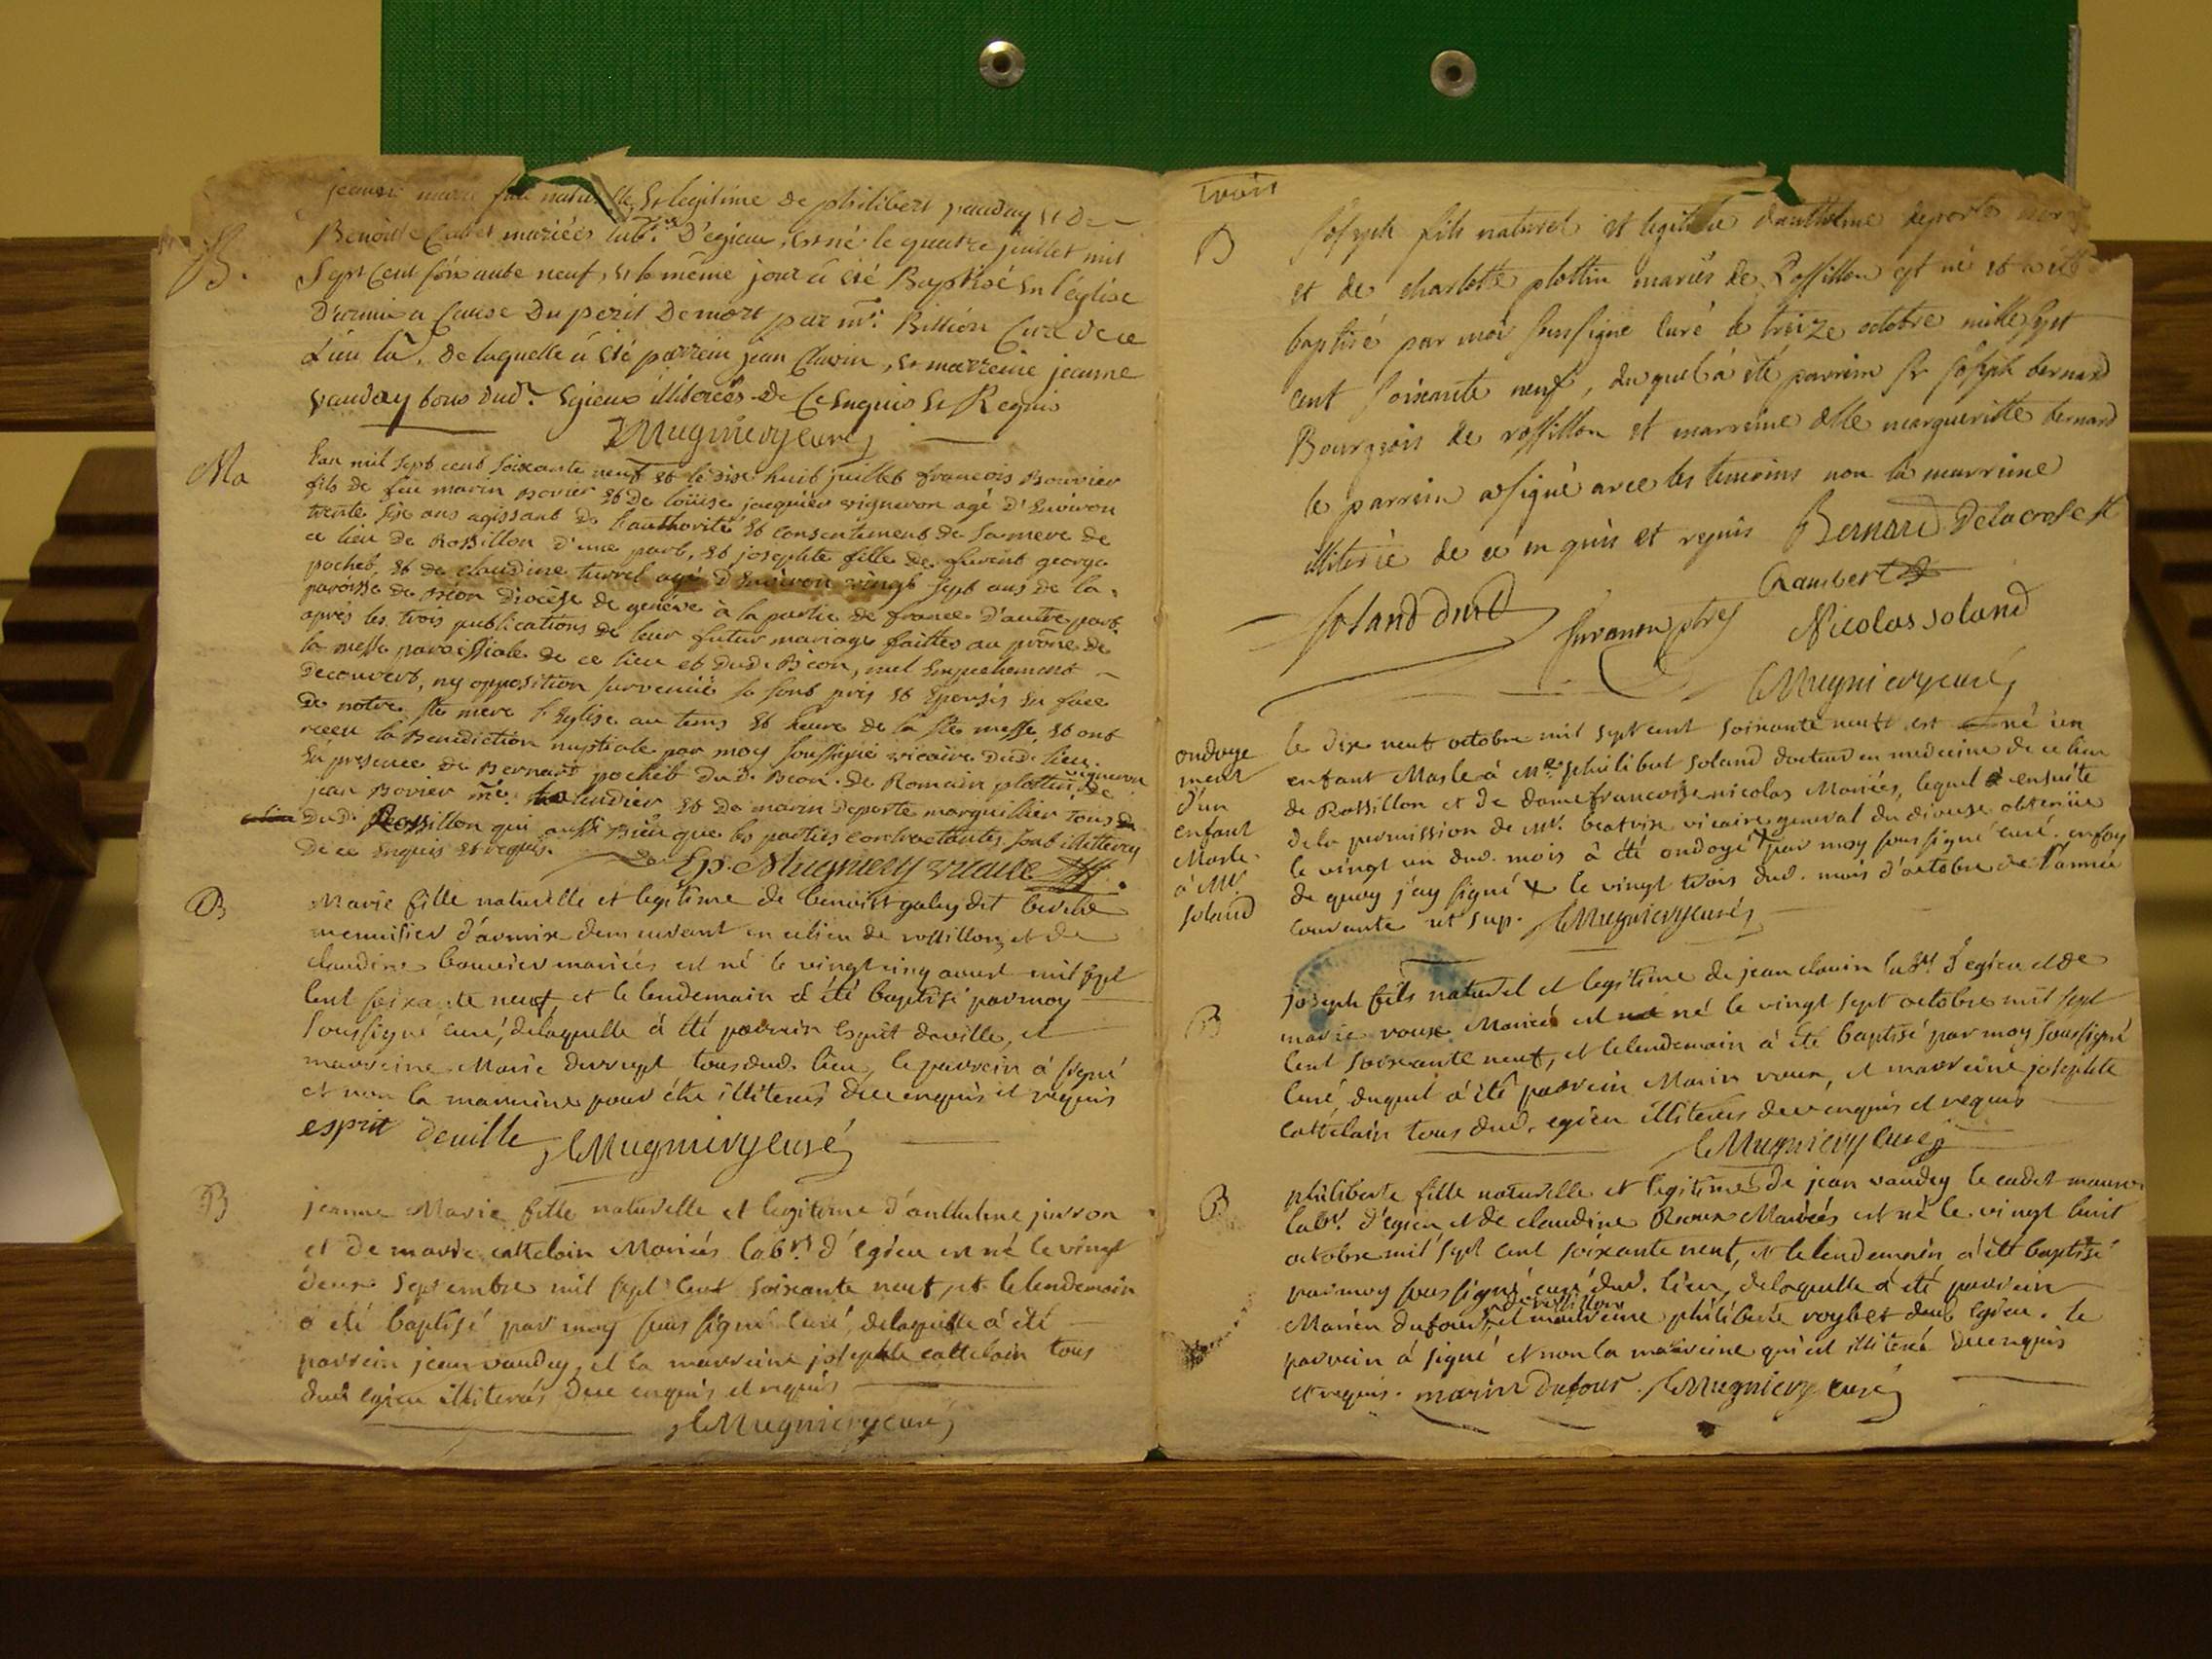 jeanne marie fille naturelle, et legitime de philibert vauday et de
B.
Benoite Cabet mariées lab.rs D'egieu, est né le quatre juillet mil
Sept Cent soixante neuf, et le même jour à été Baptisé en l'église
D'armix a Cause Du peril De mort par mr. Billion Curé de ce
Lieu là, de laquelle à été parrein jean Clavin, et marreine jeanne
vauday tous dud. Egieux illiterés De Ce Enquis et Requis
Mugniery curé
Ma
Lan mil sept cent soixante neuf et le dix huit juillet francois Bouvier
fils de feu marin Bovier et De loüise jacquier vigneron agé d'Environ
trente six ans agissant de l'authorité et consentement de sa mere de
ce lieu de Rossillon d'une part, et josephte fille de furent george
pochet, et de claudine turrel agé d'Environ vingt sept ans de la
paroisse de Béon Diocèse de genéve à la partie de france d'autre part
aprés les trois publications de leur futur mariage faittes au prône de
la messe paroissiale de ce lieu et dud. Béon, nul Empechement
decouvert, ny opposition survenüe se sont pris et Epousés en face
de notre ste mere l'Eglise au tems et heure de la ste messe, et ont
receu la Benediction nuptiale par moy soussigné vicaire dud. lieu.
En presence de Bernard pochet dud. Beon. de Romain plottin vigneron, de
jean Bovier me. taleudier et de marin Deporte marguillier tous
dud. Rossillon qui aussi Bien que les parties contractantes sont illitterés
De ce Enquis et requis.
Mugniery vicaire
B
Marie fille naturelle et legitime de benoist galey dit
menuisier d'armix demeurant en ce lieu de rossillon, et de
claudine bouvier mariés est né le vingt cinq aoust mil sept
cent soixante neuf, et le lendemain à été baptisé par moy
soussigné curé, delaquelle à été parrein Esprit daville, et
marreine Marie durrupt tous dud. lieu, le parrein à signé
et non la marreine pour étre illiterés de ce enquis et requis
esprit deville Mugniery curé
B
jeanne Marie fille naturelle et legitime d'anthelme juvron
et de marie cattelain Mariés lab.rs d'Egieu est né le vingt
deux septembre mil sept cent soixante neuf, et le lendemain
à été baptisé par moy soussigné curé, delaquelle à été
parrein jean vaudey, et la marreine josephte cattelain tous
dud. egieu illiterés de ce enquis et requis
Mugniery curé
trois
B
Joseph fils naturel et legitime d'anthelme deporte
et de charlotte plottin mariés de Rossillon est né et a été
baptisé par moi soussigné curé le treize octobre mille sept
cent soixante neuf, duquel à été parrein Sr Joseph bernard
Bourgeois de rossillon et marreine dlle margueritte bernard
le parrein a signé avec les temoins non la marreine
illiterée de ce enquis et requis Bernard Delacroix
Chambert
Soland Nicolas Soland
Mugniery curé
ondoye
ment
d'un
enfant
Masle
à Mr.
soland
le dix neuf octobre mil sept cent soixante neuf est né un
enfant Masle à Mre. philibert soland docteur en medecine de ce lieu
de Rossillon et de dame francoise nicolas Mariés, lequel ensuite
de la permission de Mr. beatrix vicaire general du diocese obtenüe
le vingt un dud. mois à été ondoyé par moy soussigné curé. en foy
de quoy j'ay signé le vingt trois dud. mois d'octobre de l'année
courante ut sup. Mugniery curé
B
joseph fils naturel et legitime de jean clavin lab.r d'egieu et de
marie roux Mariés est né le vingt sept octobre mil sept
cent soixante neuf, et le lendemain à été baptisé par moy soussigné
curé, duquel à été parrein Marin roux, et marreine josephte
cattelain tous dud. egieu illiterés de ce enquis et requis
Mugniery curé
B
philiberte fille naturelle et legitime de jean vaudey le cadet
lab.r d'egieu et de claudine Roux Mariés est né le vingt huit
octobre mil sept cent soixante neuf, et le lendemain à été baptisé
par moy soussigné curé dud. lieu, delaquelle à été parrein
Marin dufour de rossillon, et marreine philiberte roybet dud. egieu. le
parrein à signé et non la marreine qui est illiterée de ce enquis
et requis. marin dufour. Mugniery curé